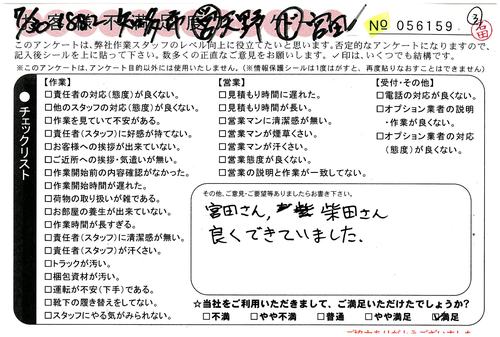 No 056159
このアンケートは、弊社作業スタッフのレベル向上に役立てたいと思います。否定的なアンケートになりますので、
記入後シールを上に貼って下さい。数多くの正直なご意見をお願いします。✓印は、いくつでも結構です。
※このアンケートは、アンケート目的以外には使用いたしません。(※情報保護シールは1度はがすと、再度貼りなおすことはできません)
●チェックリスト
【作業】
□責任者の対応(態度)が良くない。
□他のスタッフの対応(態度)が良くない。
□作業を見ていて不安がある。
□責任者(スタッフ)に好感が持てない。
□お客様への挨拶が出来ていない。
□ご近所への挨拶・気遣いが無い。
□作業開始前の内容確認がなかった。
□作業開始時間が遅れた。
□荷物の取り扱いが雑である。
□お部屋の養生が出来ていない。
□作業時間が長すぎる。
□責任者(スタッフ)に清潔感が無い。
□責任者(スタッフ)が汗くさい。
□トラックが汚い。
□梱包資材が汚い。
□運転が不安(下手)である。
□靴下の履き替えをしてない。
□スタッフにやる気がみられない。
【営業】
□見積もり時間に遅れた。
□見積もり時間が長い。
□営業マンに清潔感が無い。
□営業マンが煙草くさい。
□営業マンが汗くさい。
□営業態度が良くない。
□営業の説明と作業が一致してない。
【受付・その他】
□電話の対応が良くない。
□オプション業者の説明
・作業が良くない。
□オプション業者の対応
(態度)が良くない。
その他、ご意見・ご要望等ありましたらお書き下さい。
宮田さん, 柴田さん
良くできていました.
☆当社をご利用いただきまして、ご満足いただけたでしょうか?
□不満 □やや不満 □普通 □やや満足 ☑満足